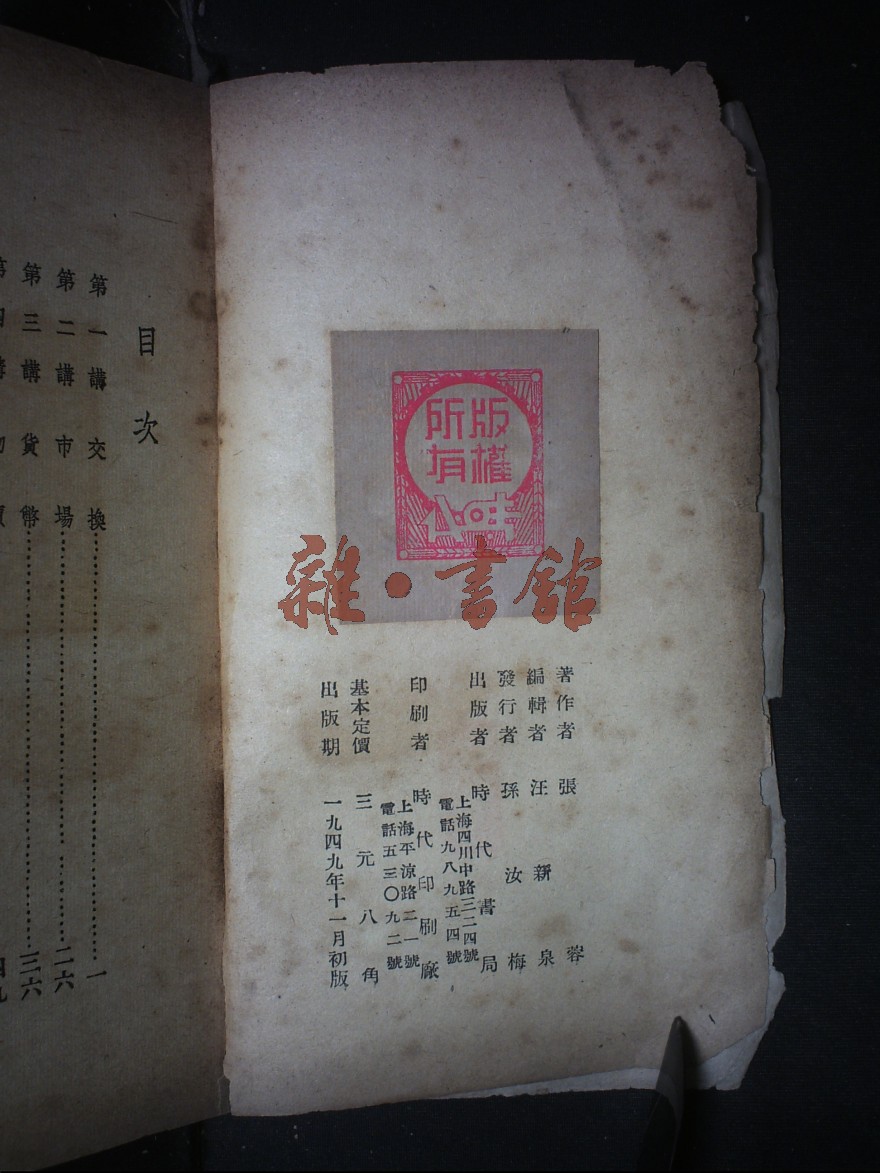 版權
所有
雜·書館
著作者 張蓉
編輯者 汪新泉
發行者 孫汝梅
出版者 時代書局
上海四川中路三二四號
電話九八九五四號
印刷者 時代印刷廠
上海平涼路二一號
電話五三〇九二號
基本定價 三元八角
出版期 一九四九年十一月初版
目次
第一講 交換……一
第二講 市場……二六
第三講 貨幣……三六